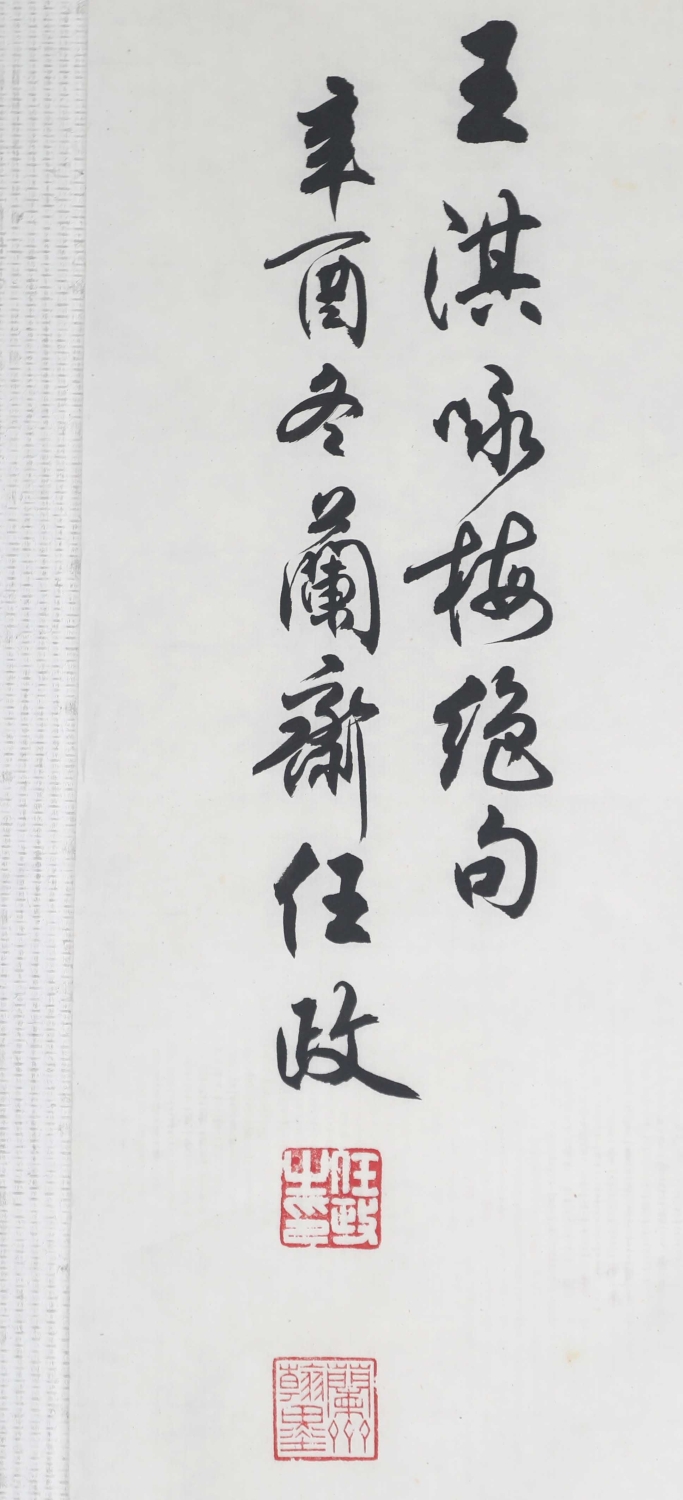 王淇咏梅絶句
辛酉冬蘭齋任政
任政之印
蘭州翰墨